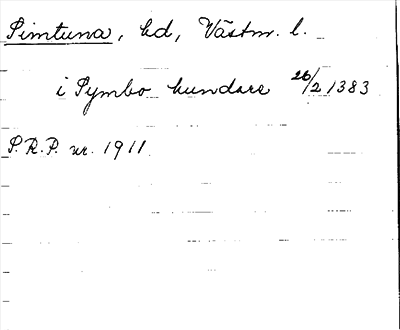 Simtuna, hd, Västm. l.
i Symbo hundare 26/2 1383
S.R.P. nr. 1911.